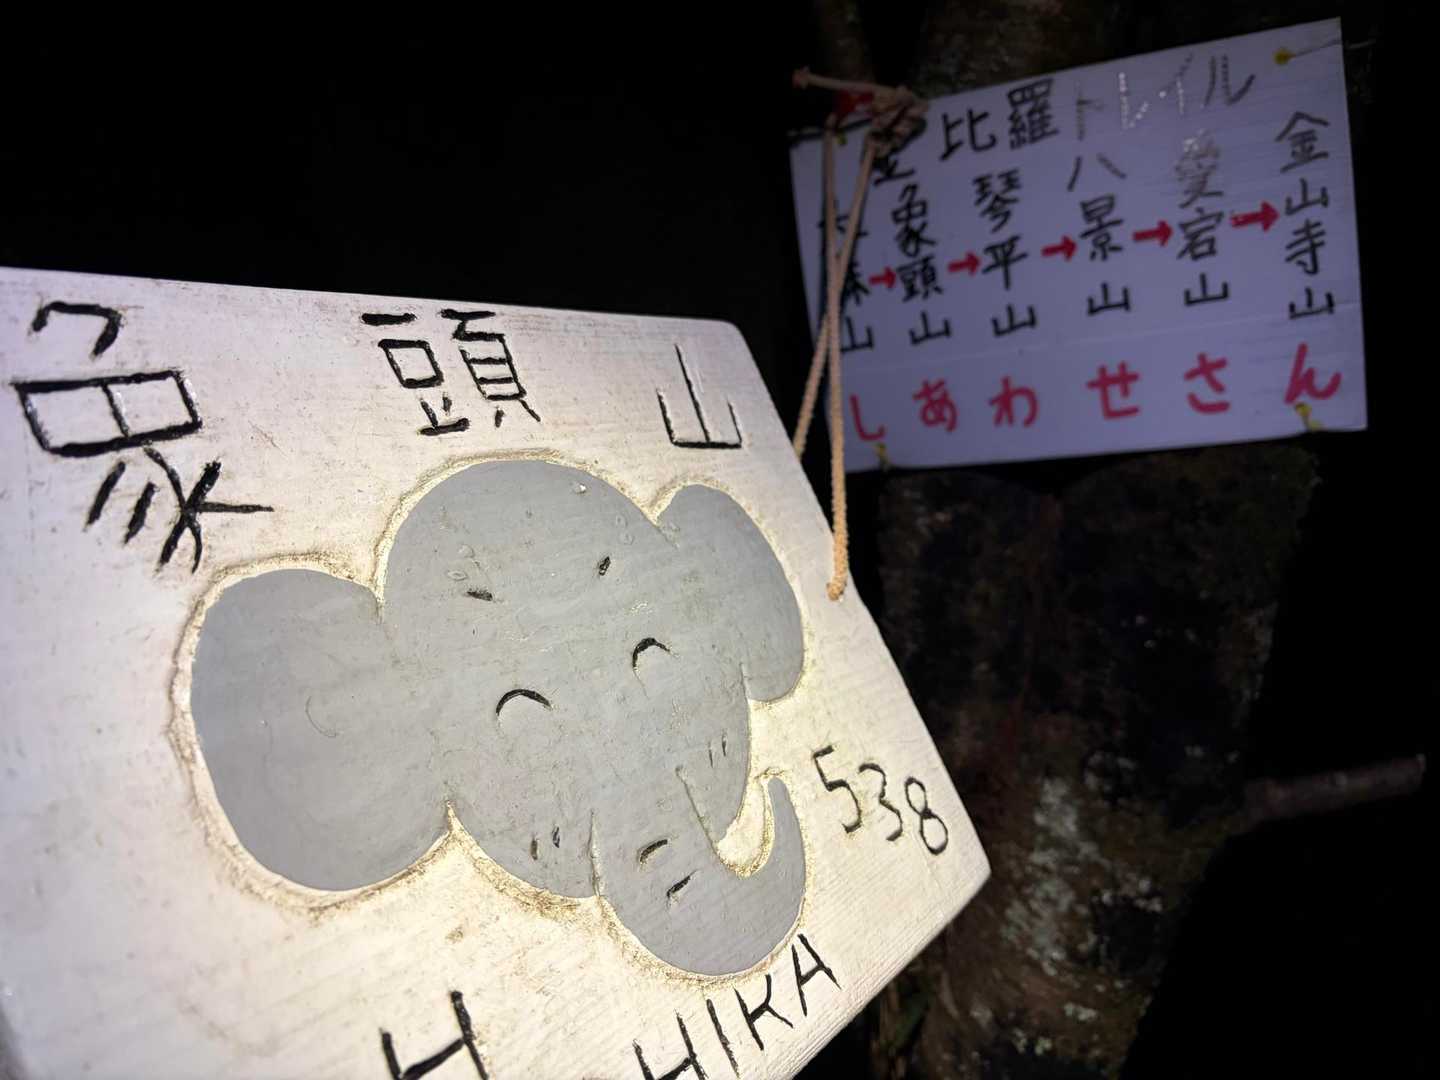 象頭山
538
HIKA
金比羅トレイル
大麻山→象頭山→琴平山→八景山→愛宕山→金山寺山
しあわせさん